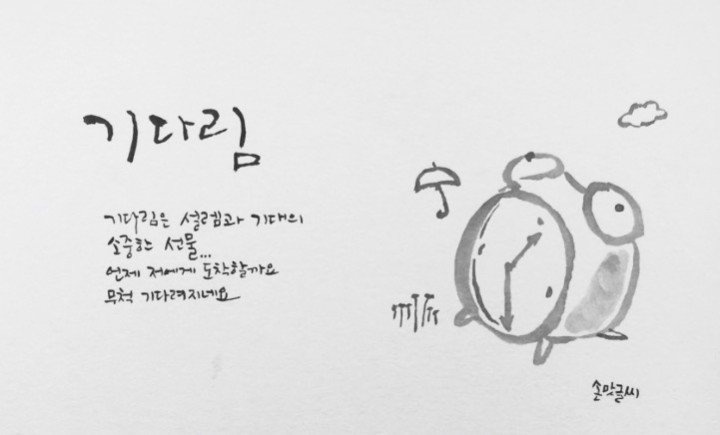 기다림
기다림은 설렘과 기대의
소중한 선물...
언제 저에게 도착할까요
무척 기다려지네요
손맛글씨